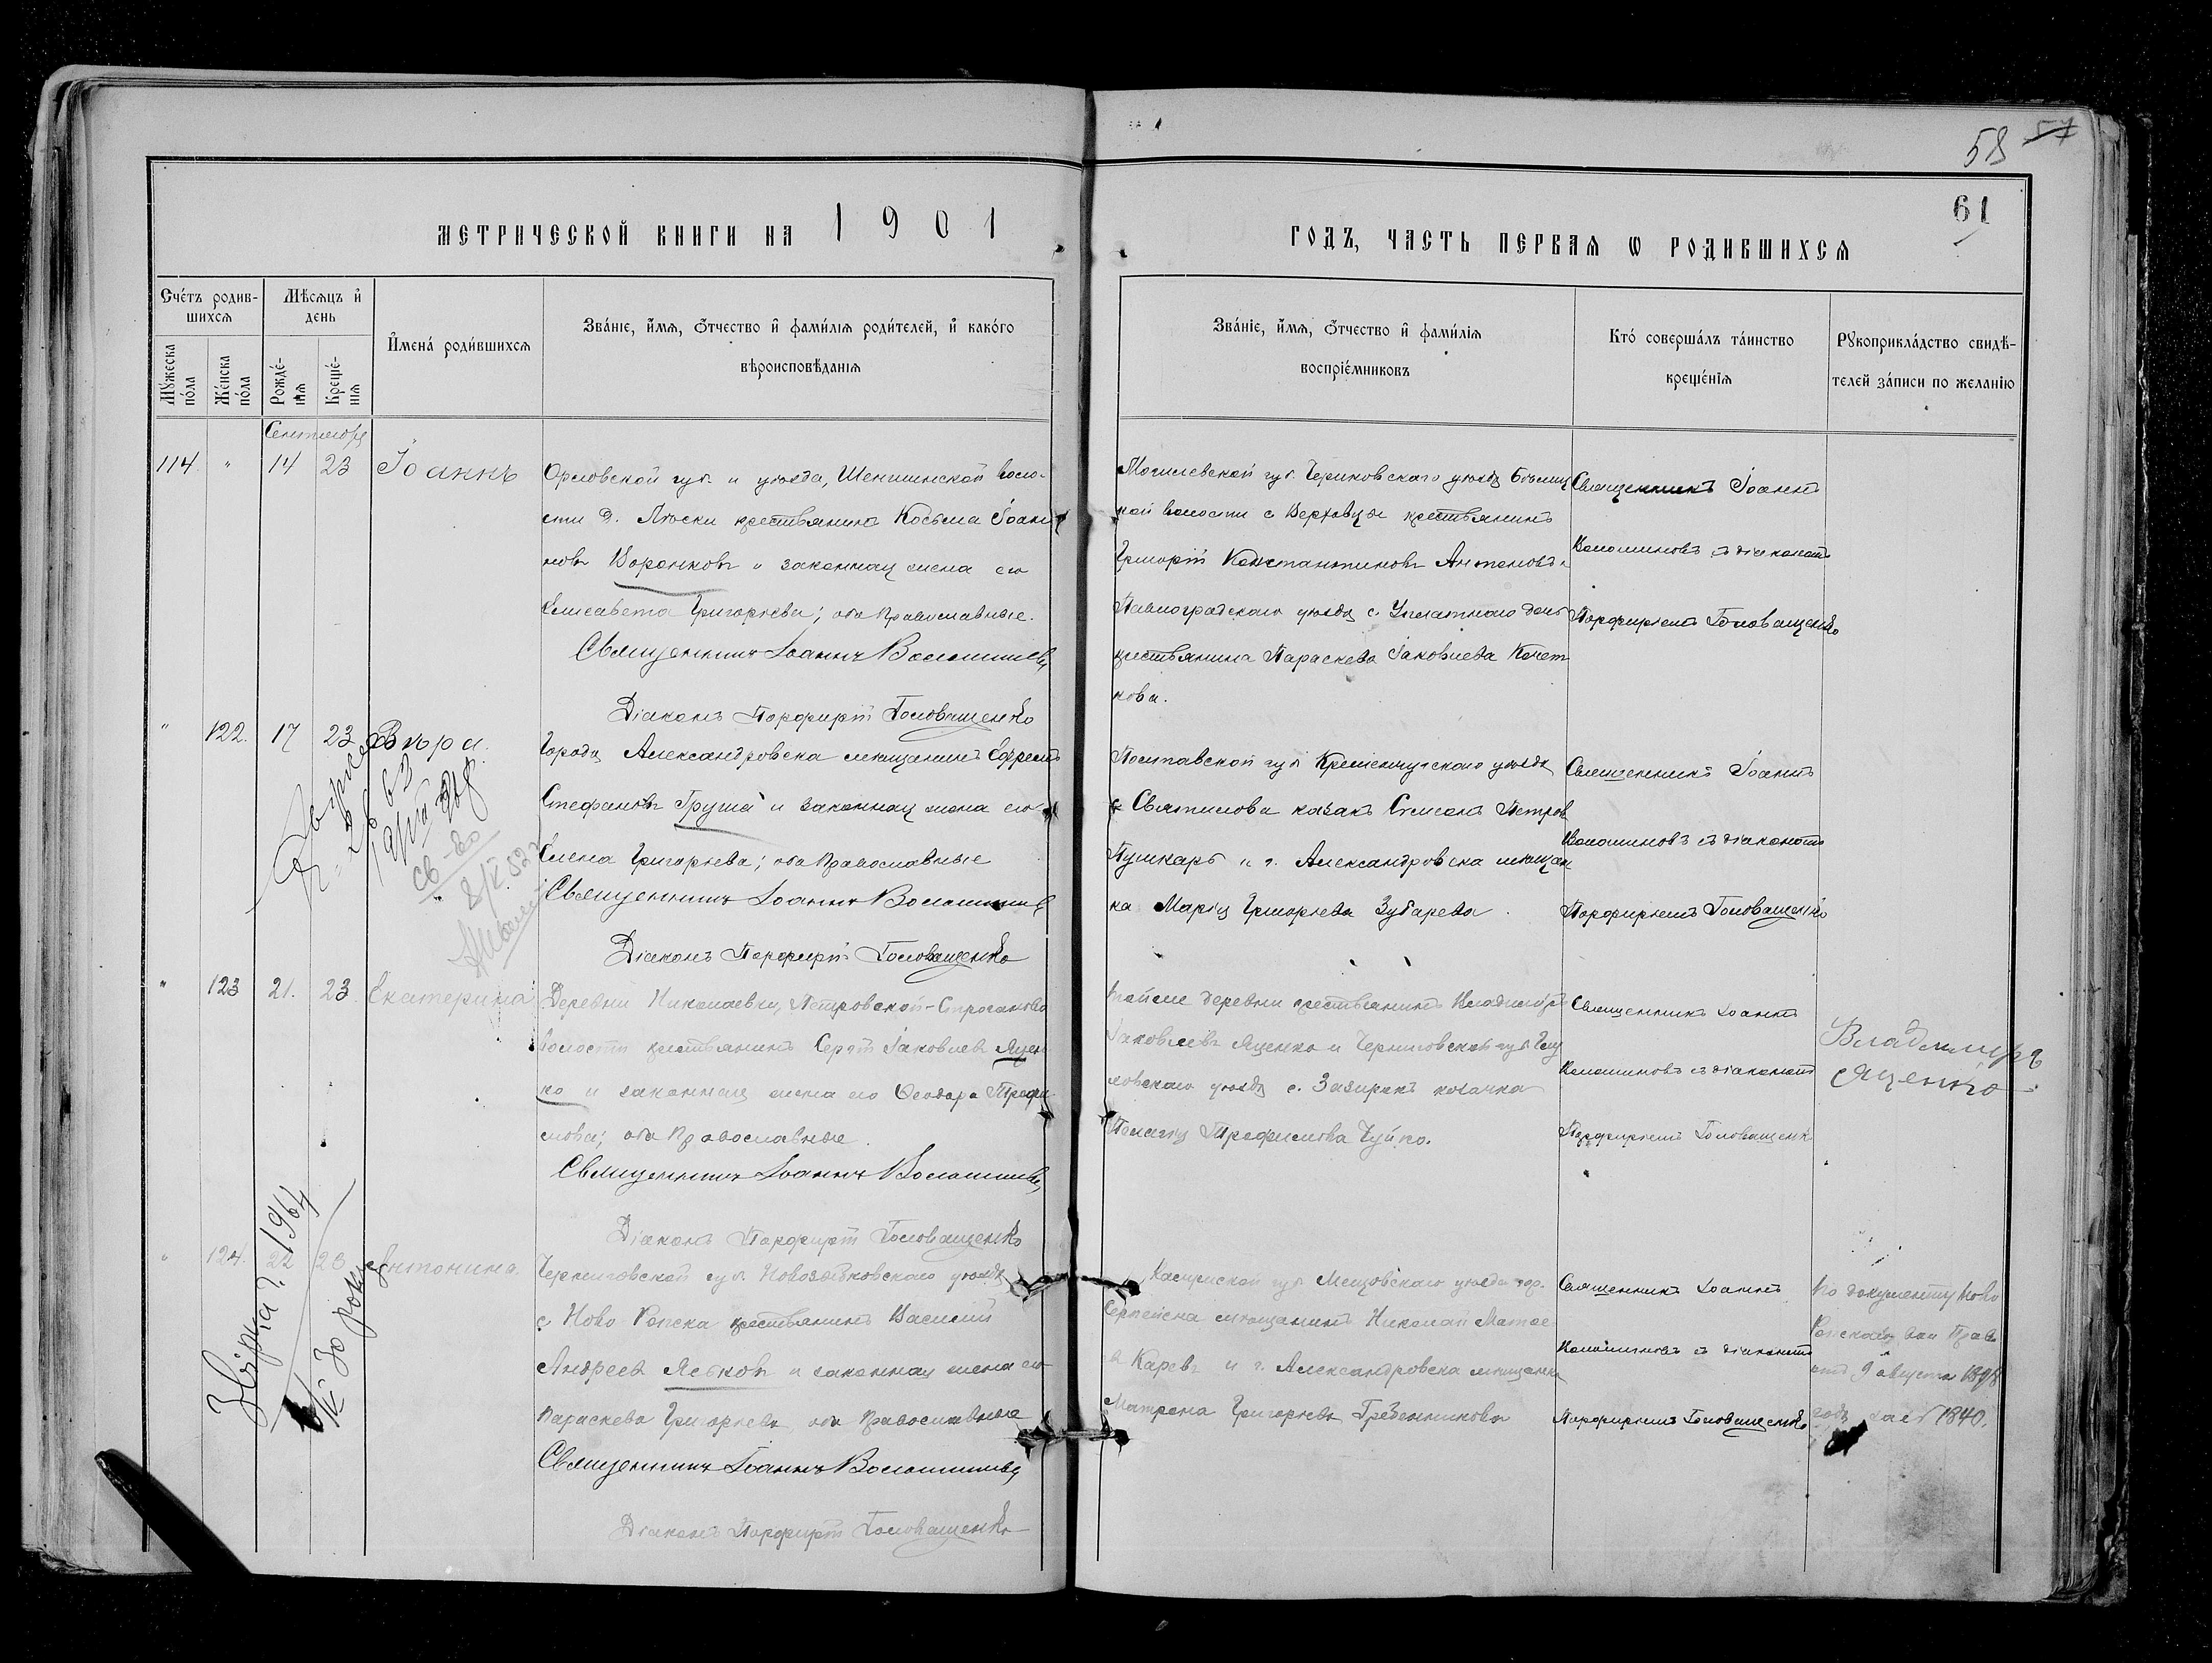 58 57
61
МЕТРИЧЕСКОЙ КНИГИ НА 1901
ГОДЪ, ЧАСТЬ ПЕРВАЯ Ѡ РОДИВШИХСЯ
Счетъ родив-
шихся
Мѣсяцъ и
день
Мужеска
пола
Женска
пола
Рожде-
нія
Креще-
нія
Имена родившихся
Званіе, имя, отчество и фамилія родителей, и какого
вѣроисповѣданія
Званіе, имя, отчество и фамилія
воспріемниковъ
Кто совершалъ таинство
крещенія
Рукоприкладство свидѣ-
телей записи по желанію
Сентября
114. " 14 23 Іоаннъ
Орловской губ. и уѣзда, Шеншинской воло-
сти д. крестьянинъ Косьма Іоан-
новъ Воронковъ и законная жена его
Елисавета Григорьева; оба православные.
Священникъ Іоаннъ Волошиновъ
Діаконъ Порфирій Головащенко
Могилевской губ. Чериковскаго уѣзда
кой волости с. крестьянинъ
Григорій Константиновъ Антоновъ и
Павлоградскаго уѣзда с. дочь
крестьянина Параскева Іаковлева Кочет
кова.
Священникъ Іоаннъ
Волошиновъ съ діакономъ
Порфиріемъ Головащенко
" 122. 17 23 Вѣра.
Города Александровска мѣщанинъ Ефремъ
Стефановъ Груша и законная жена его
Елена Григорьева; оба православные
Священникъ Іоаннъ Волошиновъ
Діаконъ Порфирій Головащенко
Полтавской губ. Кременчугскаго уѣзда
с. Святилова казакъ Симеонъ Петров
Пушкарь и г. Александровска мѣщан
ка Марія Григорьева Зубарева.
Священникъ Іоаннъ
Волошиновъ съ діакономъ
Порфиріемъ Головащенко
св-во
" 123 21. 23. Екатерина
Деревни Николаевки, Петровской-Строганово
волости крестьянинъ Сергій Іаковлев Яцен
ко и законная жена его Ѳеодора Трофи
мова; оба православные.
Священникъ Іоаннъ Волошиновъ
Діаконъ Порфирій Головащенко
той же деревни крестьянинъ Владиміръ
Іаковлевъ Яценко и Черниговской губ. Глу
ховскаго уѣзда с. козачка
Пелагія Трофимова Чуйко.
Священникъ Іоаннъ
Волошиновъ съ діакономъ
Порфиріемъ Головащенко
Владимиръ
Яценко
" 124. 22 23 Антонина.
Черниговской губ. Новозыбковскаго уѣзда
с. Ново Ропска крестьянинъ Василій
Андреев Яськовъ и законная жена его
Параскева Григорьева оба православные
Священникъ Іоаннъ Волошиновъ
Діаконъ Порфирій Головащенко
Калужской губ. Мещовскаго уѣзда гор.
Серпейска мѣщанинъ Николай Матве
ев Каревъ и г. Александровска мѣщанка
Матрона Григорьева Гребенникова
Священникъ Іоаннъ
Волошиновъ съ діакономъ
Порфиріемъ Головащенко
По документу Ново
Ропскаго вол. Прав.
отъ 9 августа 1898
года за № 1840.
Звірка 1964